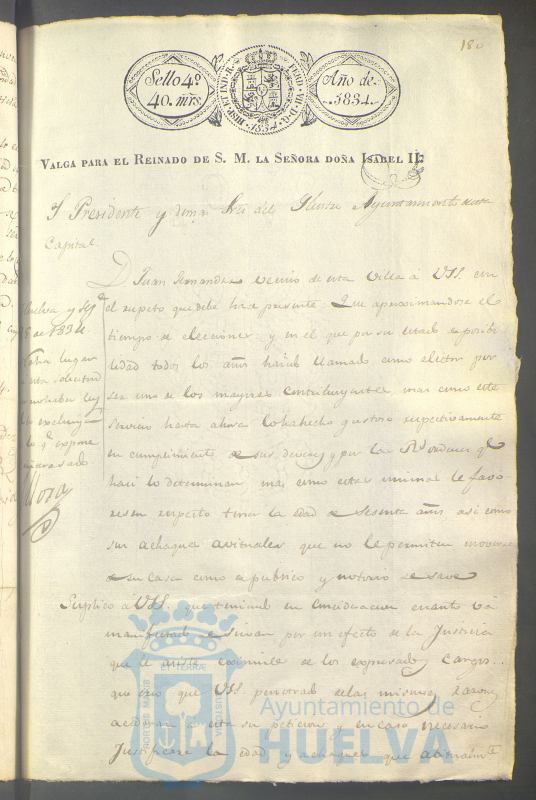 180
Sello 4º
40. mrs.
HISP. ET IND. R.
1834
Año de
1834.
VALGA PARA EL REINADO DE S. M. LA SEÑORA DOÑA ISABEL II.
Presidente y demas Sres del Ilustre Ayuntamiento de esta
Capital
D. Juan Fernandez vecino de esta Villa á VSS. con
el respeto que debe hace presente: Que aproximandose el
tiempo de elecciones y en el que por su estado
todos los años ha sido llamado como elector por
ser uno de los mayores contribuyentes, mas como este
servicio hasta ahora lo ha hecho gustoso respectivamente
en cumplimiento de sus deveres y por las Rs ordenes qe
haci lo determinan mas como estas mismas le favo-
resen respecto tener la edad de sesenta años asi como
sus achaques avituales que no le permiten moverse
de su casa como es publico y notorio se save
Suplico á VSS. que teniendo en consideracion cuanto vá
manifestado se sirvan por un efecto de la Justicia
que le asiste de los espresados cargos
que VSS. penetrados de las mismas razones
á esta su peticion y en caso necesario
Justificare la edad y achaques que
Huelva y
de 1834.
lugar
esta solicitud
espone
Ayuntamiento de
HUELVA
PORTUS MARIS
ET TERRAE
CUSTODIA